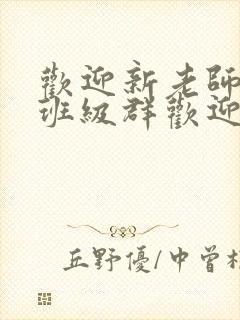 歡迎新老師
班級群歡迎
丘野優/中曾